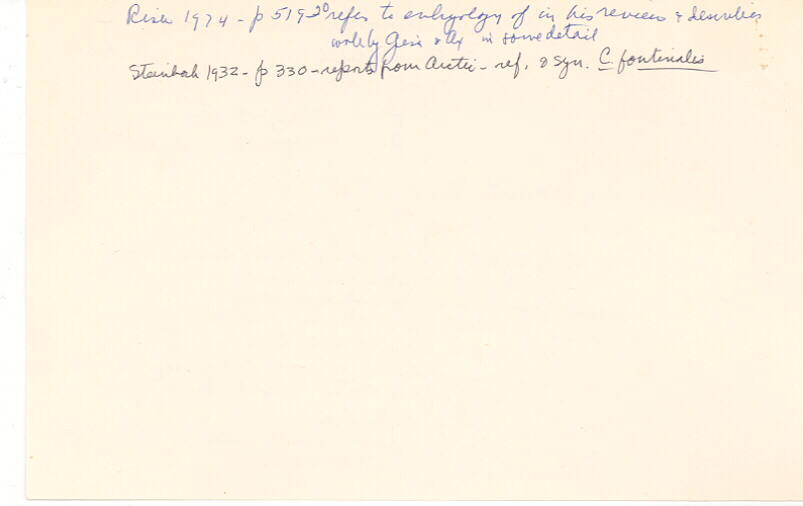 Riser 1974 - p 519-20 refers to embryology of in his review & describes
work by in some detail
Steinböck 1932 - p 330 - reports from Arctic - ref. & syn. C. fontinalis